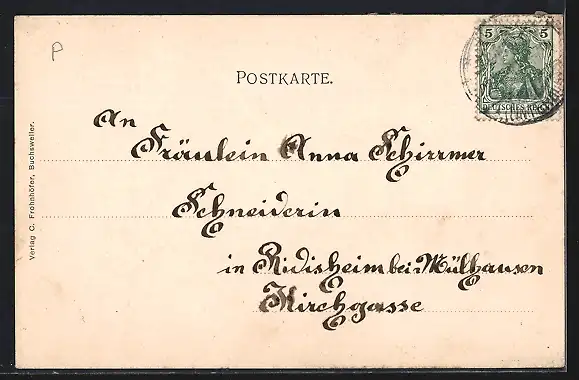 P
5 5
DEUTSCHES REICH
POSTKARTE.
An
Fräulein Anna Schirrmer
Schneiderin
in Ridisheim bei Mülhausen
Kirchgasse
Verlag C. Frohnhöfer, Buchsweiler.